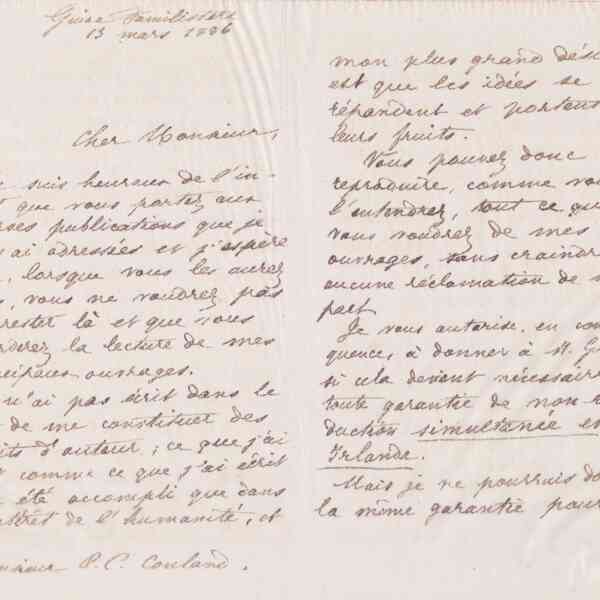 Guise Familistère
13 mars 1886
Cher Monsieur,
suis heureux de l'in-
que vous portez aux
publications que je
ai adressées et j'espère
, lorsque vous les aurez
, vous ne voudrez pas
rester là et que vous
la lecture de mes
ouvrages.
n'ai pas écrit dans le
de me constituer des
d'auteur ; ce que j'ai
comme ce que j'ai écrit
été accompli que dans
de l'humanité, et
P. C. Couland.
mon plus grand dési
est que les idées se
répandent et portent
leurs fruits.
Vous pouvez donc
reproduire, comme vou
l'entendrez, tout ce qu
vous voudrez de mes
ouvrages, sans craindr
aucune réclamation de m
part.
Je vous autorise, en con
quence, à donner à M. G
si cela devient nécessaire
toute garantie de non-r
duction simultanée en
Irlande.
Mais je ne pourrais do
la même garantie pour